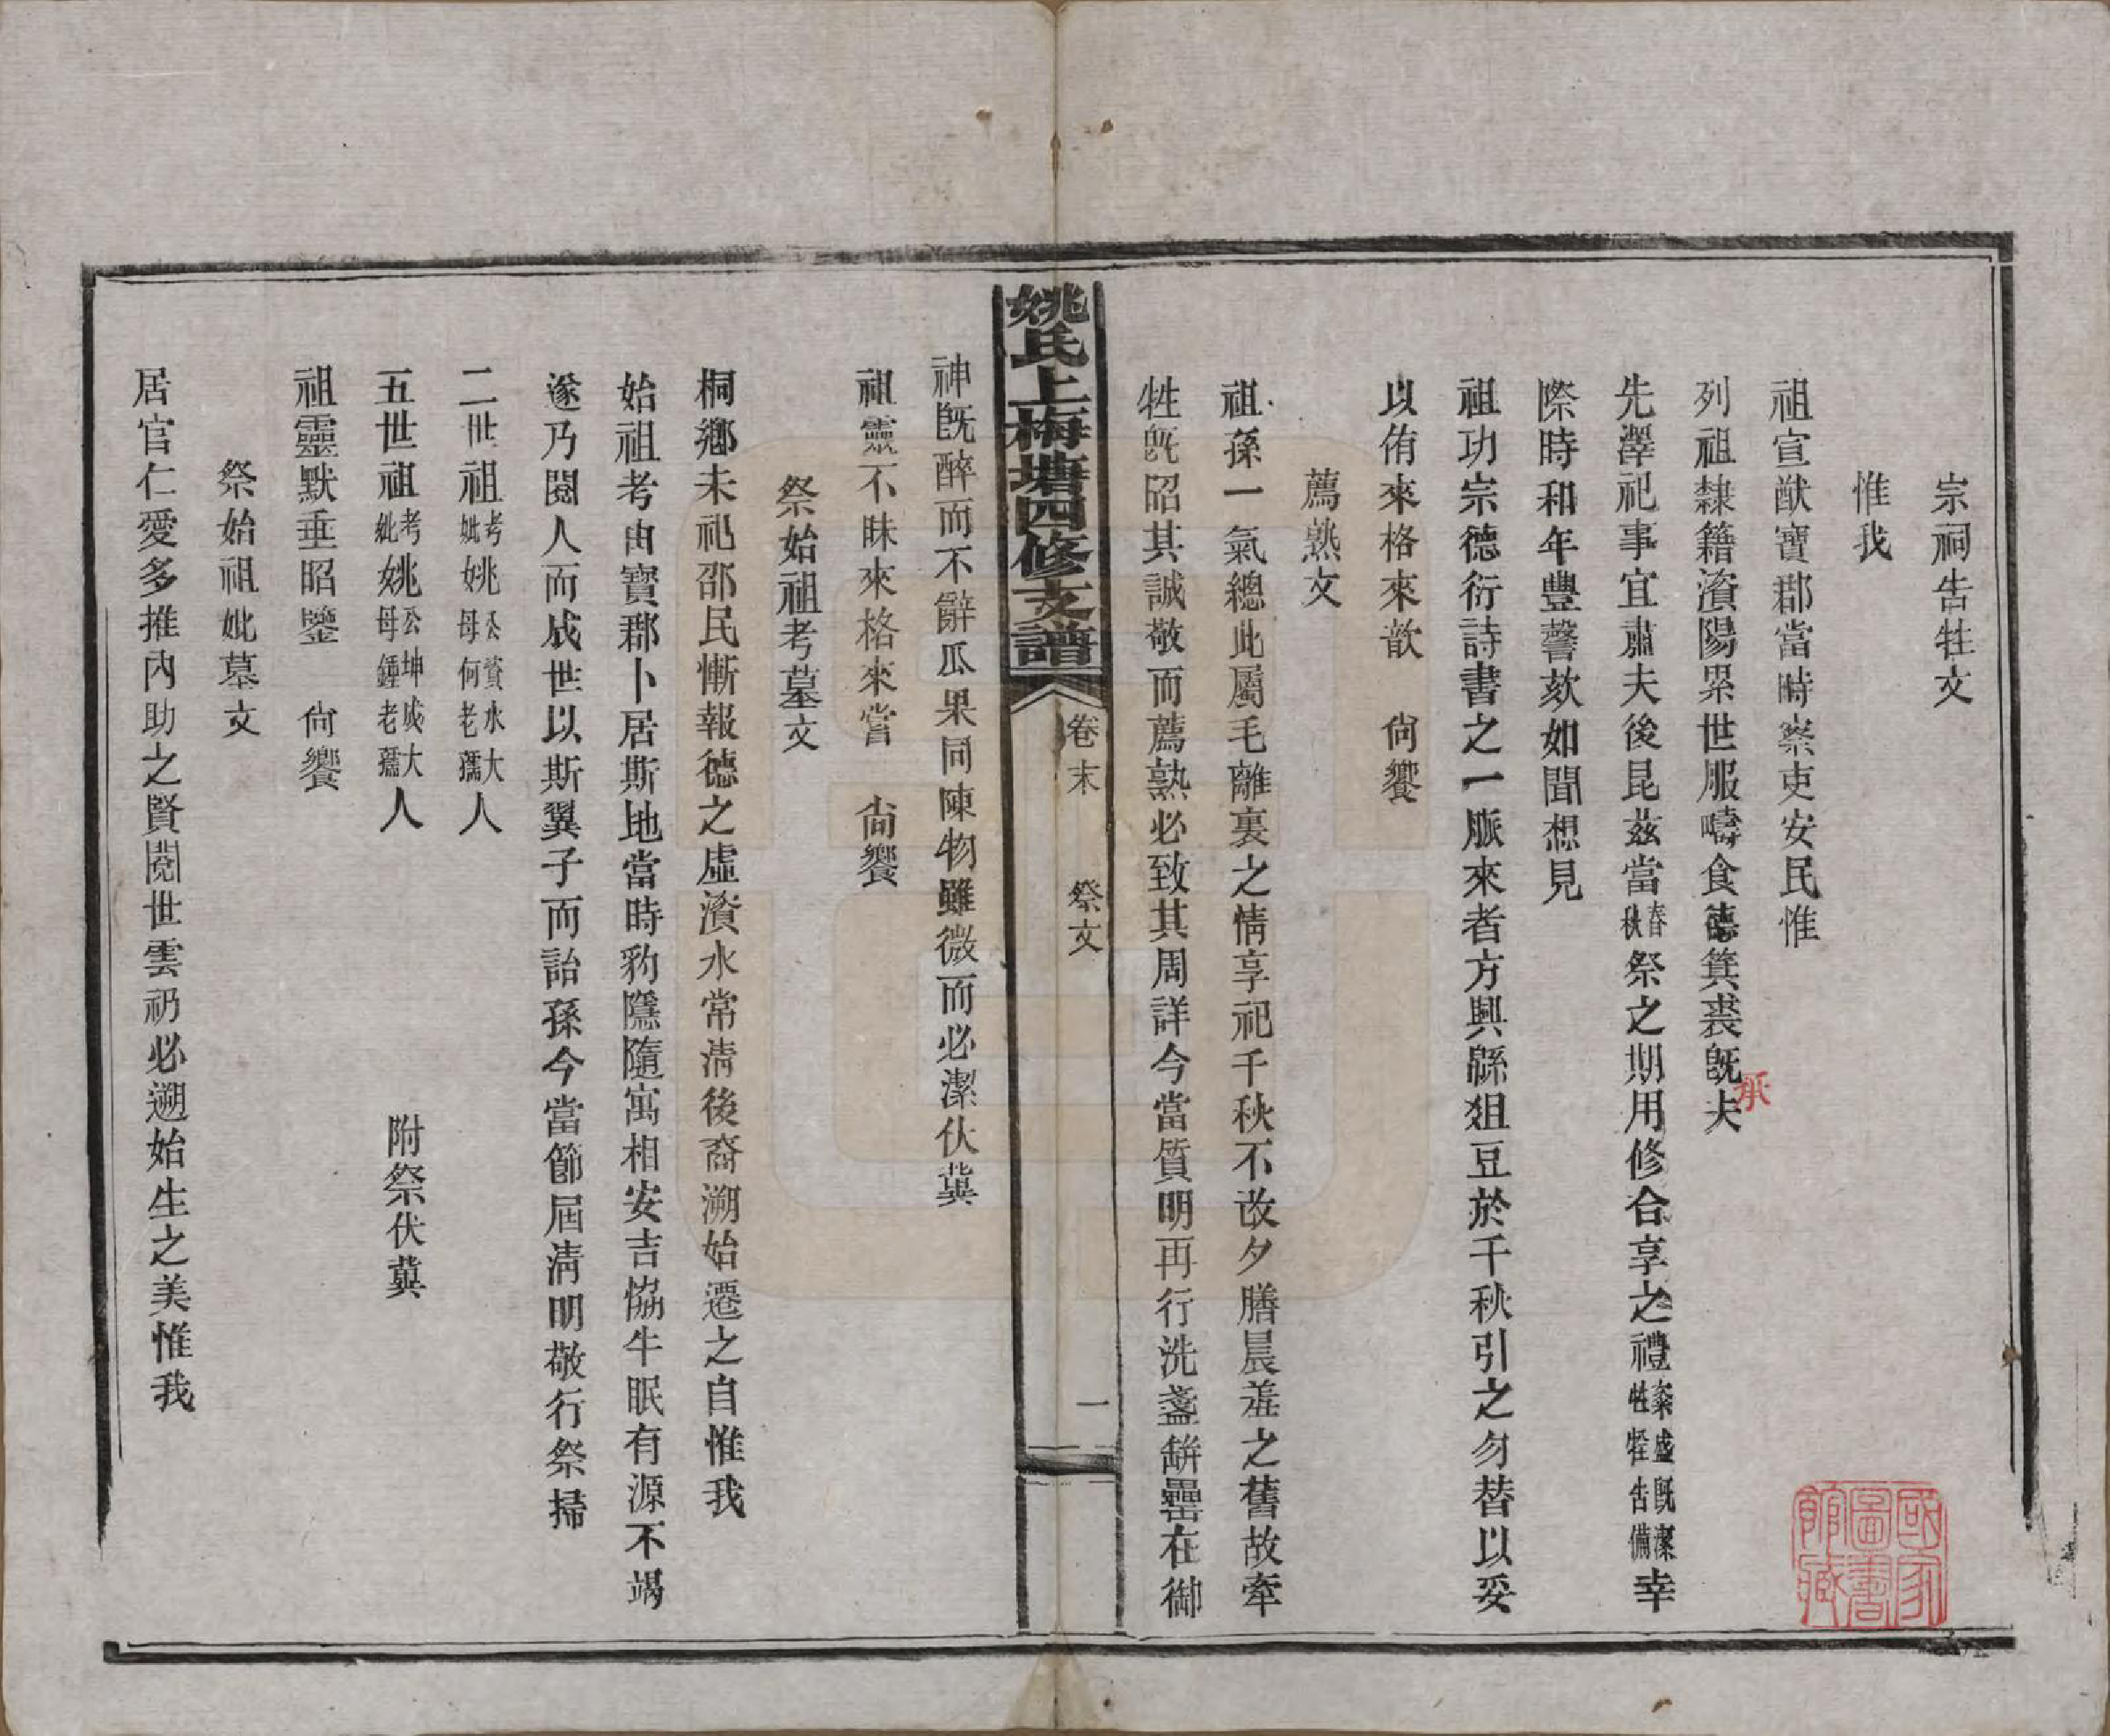 宗祠告牲文
惟我
祖宣猷寶郡當時察吏安民惟
列祖隸籍濱陽累世服疇食德箕裘旣夫
承
先澤祀事宜肅夫後昆茲當春秋祭之期用修合享之禮粢盛旣潔牲牷告備幸
際時和年豐馨欬如聞想見
祖功宗德衍詩書之一脈來者方興緜俎豆於千秋引之勿替以妥
以侑來格來歆 尙饗
薦熟文
祖孫一氣總此屬毛離裏之情享祀千秋不改夕膳晨羞之舊故牽
牲旣昭其誠敬而薦熟必致其周詳今當質明再行洗盞缾罍在御
姚氏上梅塘四修支譜
卷末
祭文
一
神旣醉而不辭瓜果同陳物雖微而必潔伏冀
祖靈不昧來格來嘗 尙饗
祭始祖考墓文
桐鄕未祀邵民慚報德之虛濱水常淸後裔溯始遷之自惟我
始祖考由寶郡卜居斯地當時豹隱隨寓相安吉協牛眠有源不竭
遂乃閱人而成世以斯翼子而詒孫今當節屆淸明敬行祭掃
二世祖考妣姚公資水大母何老孺人
五世祖考妣姚公坤城大母鍾老孺人 附祭伏冀
祖靈默垂昭鑒 尙饗
祭始祖妣墓文
居官仁愛多推內助之賢閱世雲礽必遡始生之美惟我
國家圖書館藏